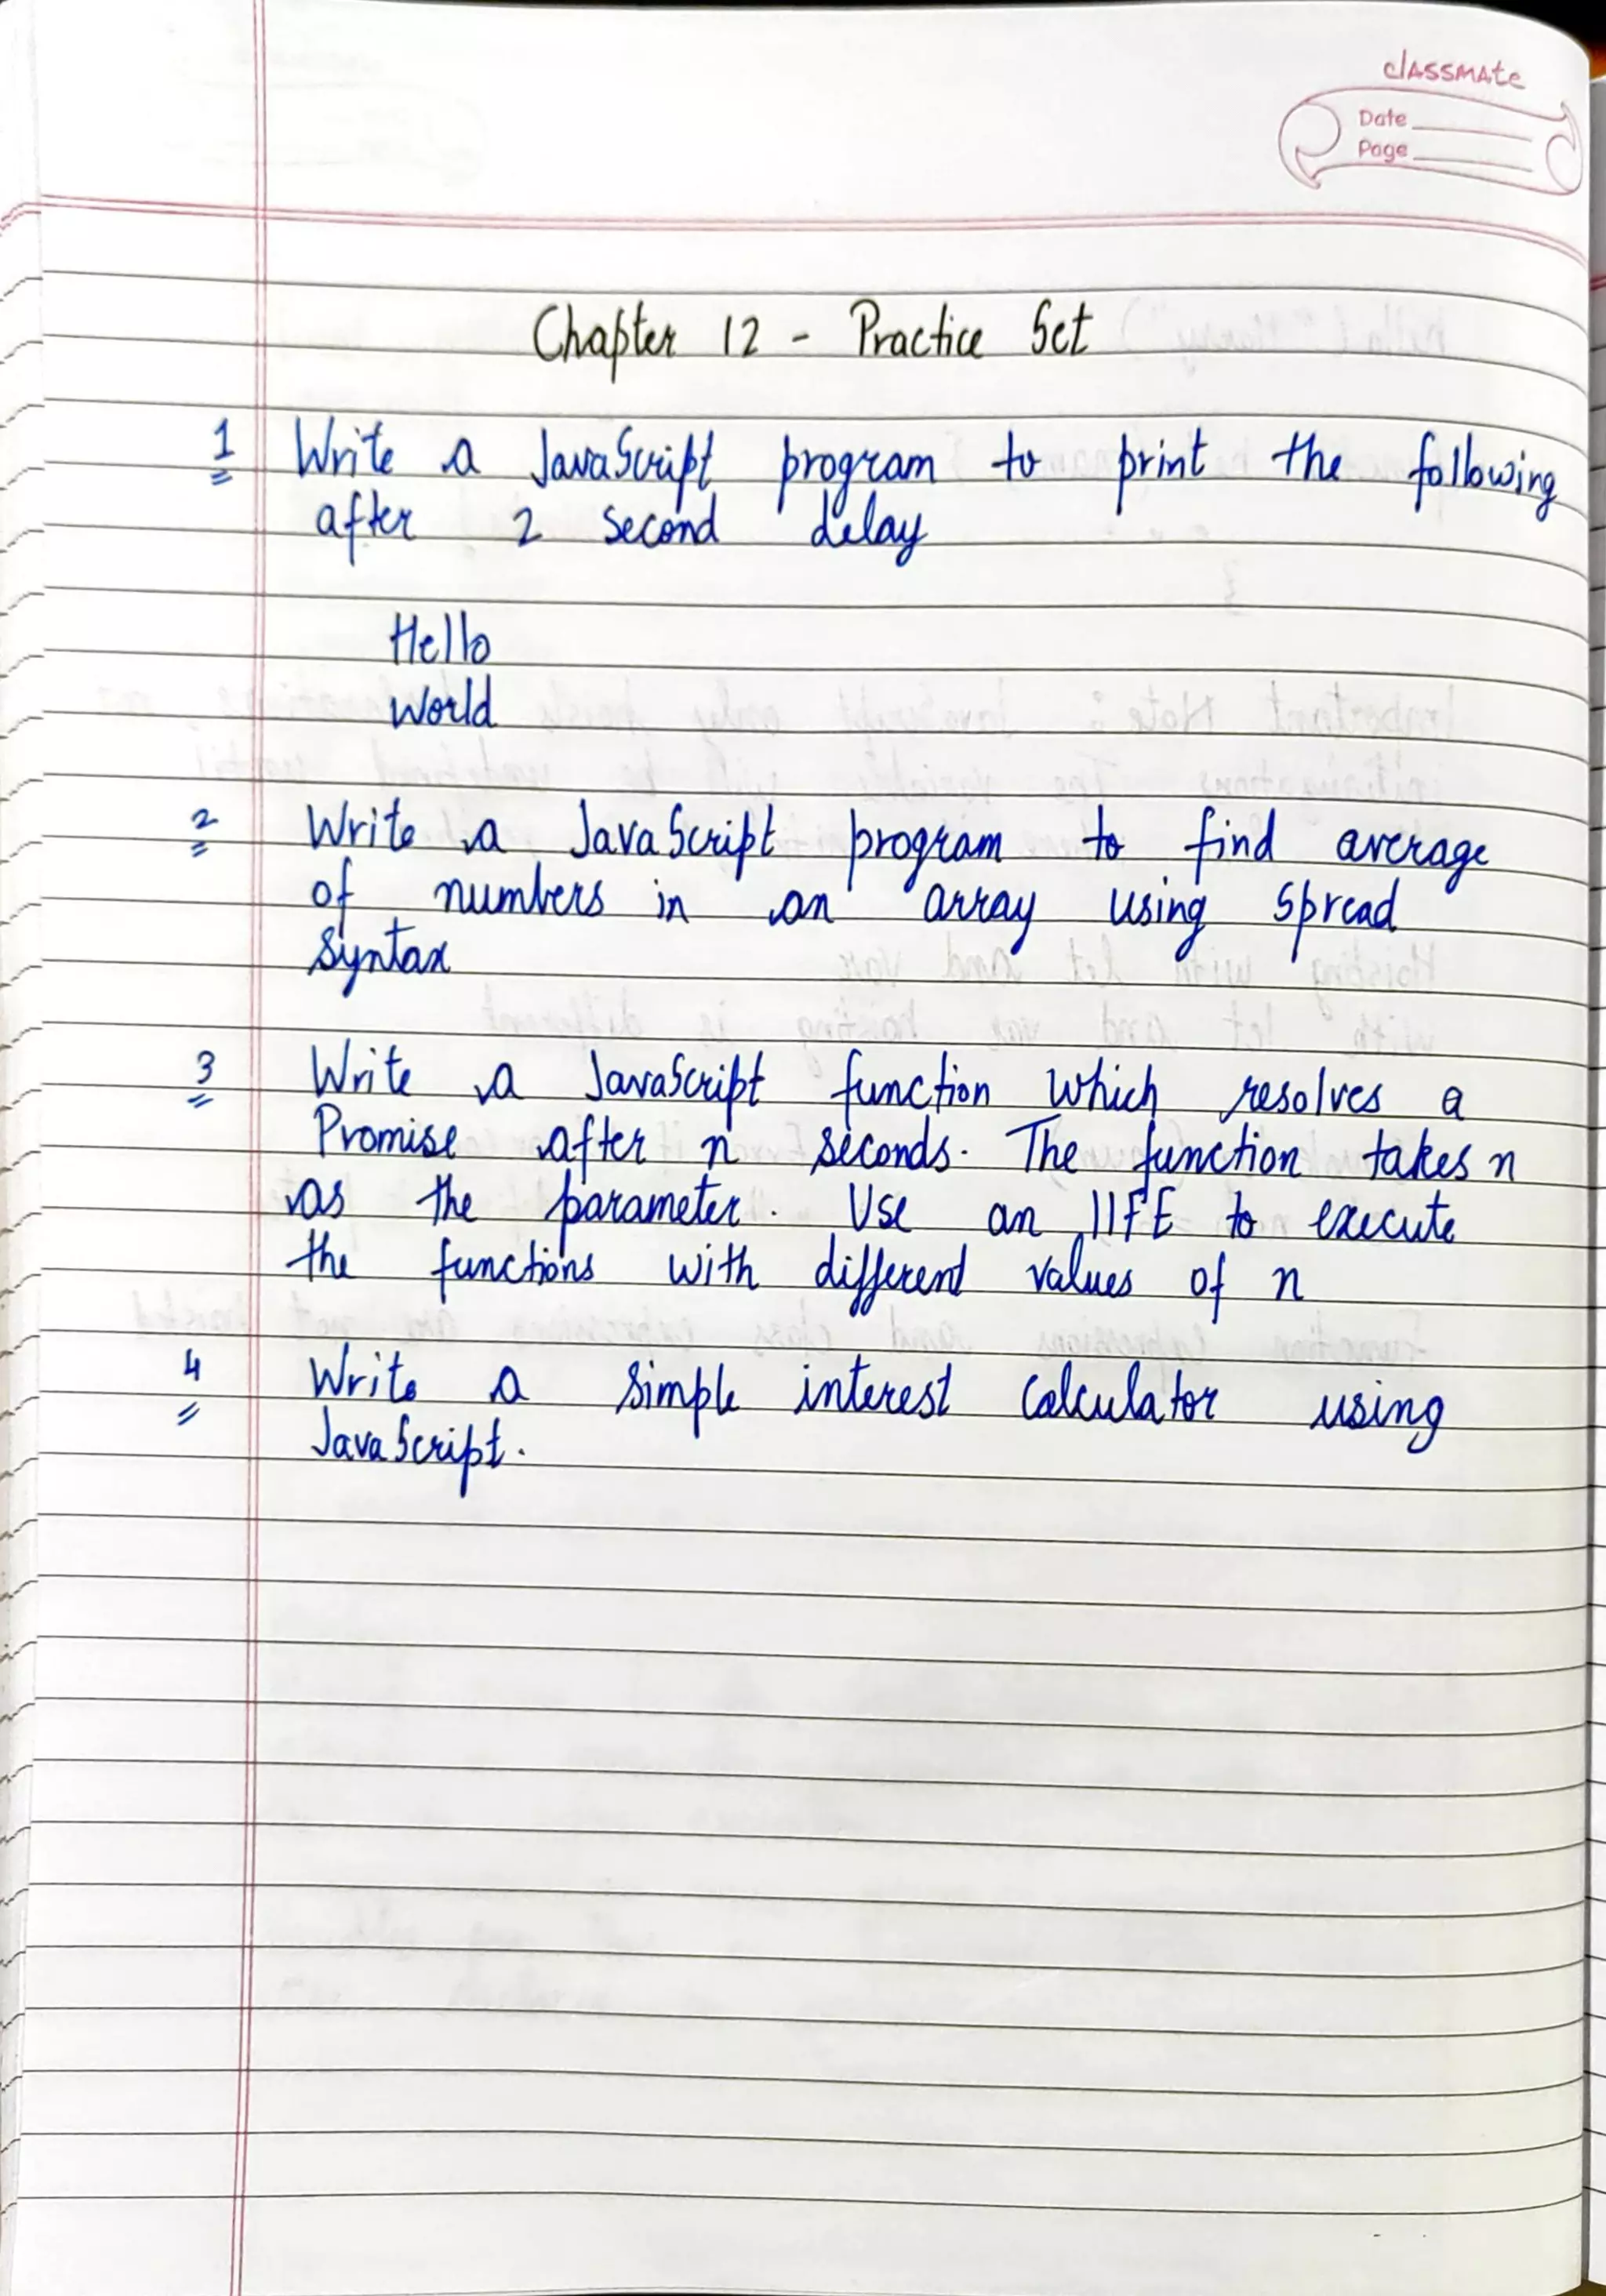 classmate
Date
Page
Chapter 12 - Practice Set
1 Write a JavaScript program to print the following
after 2 second delay
Hello
World
2 Write a JavaScript program to find average
of numbers in an array using spread
syntax
3 Write a JavaScript function which resolves a
Promise after n seconds. The function takes n
as the parameter. Use an IIFE to execute
the functions with different values of n
4 Write a simple interest calculator using
JavaScript.